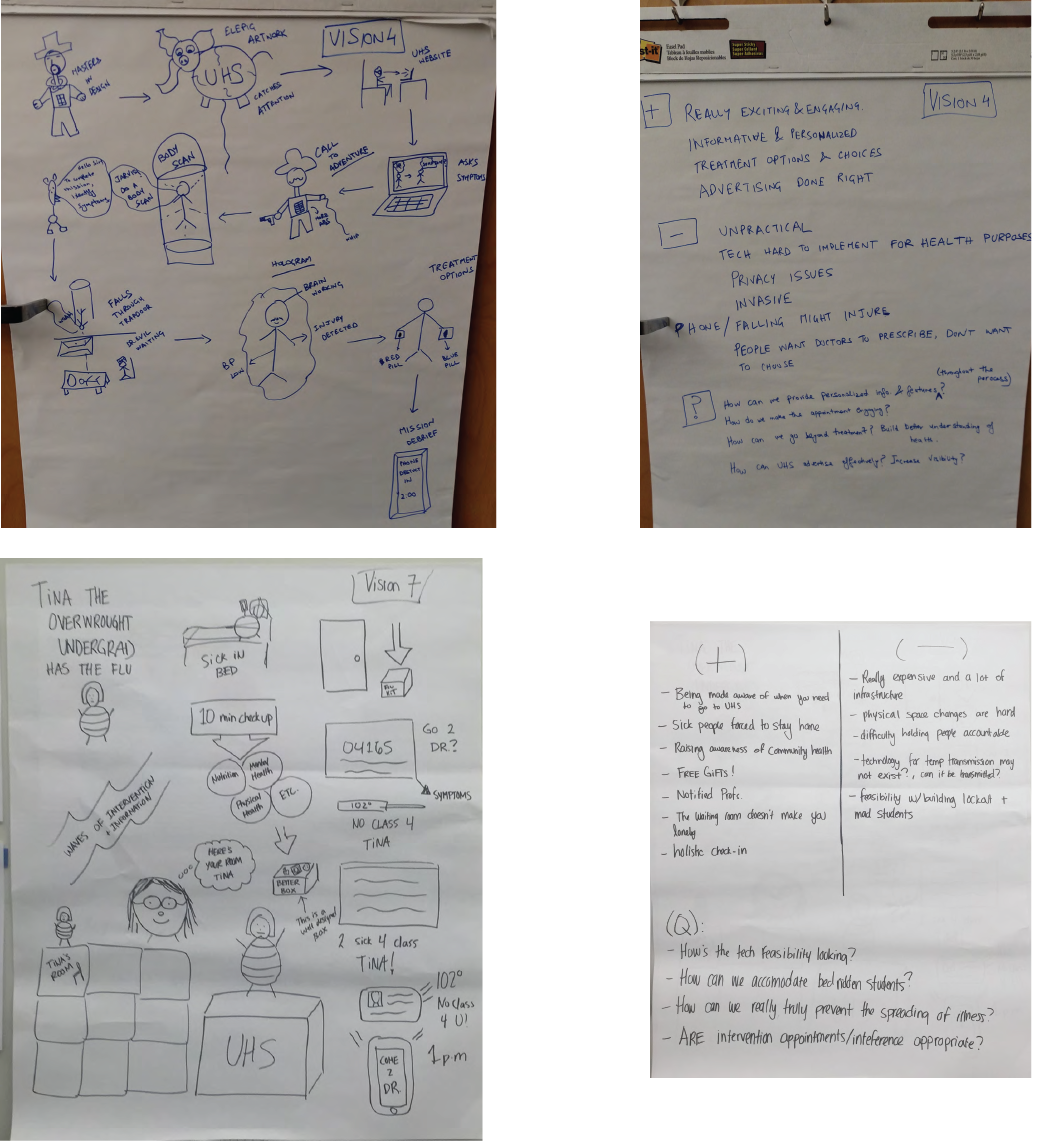 MASTERS
IN
DESIGN
ELEPIG
ARTWORK
UHS
CATCHES
ATTENTION
VISION 4
UHS
WEBSITE
ASKS
SYMPTOMS
CALL
TO
ADVENTURE
BODY
SCAN
JARVIS
DO A
BODY
SCAN
FALLS
THROUGH
TRAPDOOR
DR. EVIL
WAITING
HOLOGRAM
BRAIN
WORKING
INJURY
DETECTED
BP
LOW
TREATMENT
OPTIONS
RED
PILL
BLUE
PILL
MISSION
DEBRIEF
PHONE
IN
2:00
st-it
Easel Pad
Super Sticky
VISION 4
+ REALLY EXCITING & ENGAGING.
INFORMATIVE & PERSONALIZED
TREATMENT OPTIONS & CHOICES
ADVERTISING DONE RIGHT
- UNPRACTICAL
TECH HARD TO IMPLEMENT FOR HEALTH PURPOSES
PRIVACY ISSUES
INVASIVE
PHONE / FALLING MIGHT INJURE
PEOPLE WANT DOCTORS TO PRESCRIBE, DON'T WANT
TO CHOOSE
(throughout the
process)
? How can we provide personalized info & features?
How do we make the appointment engaging?
How can we go beyond treatment? Build better understanding of
health.
How can UHS advertise effectively? Increase visibility?
TINA THE
OVERWROUGHT
UNDERGRAD
HAS THE FLU
Vision 7
SICK IN
BED
FLU
KIT
10 min check up
Nutrition
Mental
Health
Physical
Health
ETC.
04165
GO 2
DR.?
SYMPTOMS
102°
NO CLASS 4
TINA
WAVES OF INTERVENTION
+ INFORMATION
HERE'S
YOUR ROOM
TINA
BETTER
BOX
This is a
well designed
box
2 sick 4 class
TINA!
TINA'S
ROOM
UHS
102°
No class
4 U!
COME
2
DR.
1 p.m
(+)
- Being made aware of when you need
to go to UHS
- Sick people forced to stay home
- Raising awareness of community health
- FREE GIFTS!
- Notified Profs.
- The waiting room doesn't make you
lonely
- holistic check-in
(-)
- Really expensive and a lot of
infrastructure
- physical space changes are hard
- difficulty holding people accountable
- technology for temp transmission may
not exist?, can it be transmitted?
- feasibility w/building lockout +
mad students
(Q):
- How's the tech feasibility looking?
- How can we accomodate bed ridden students?
- How can we really truly prevent the spreading of illness?
- ARE intervention appointments/inteference appropriate?